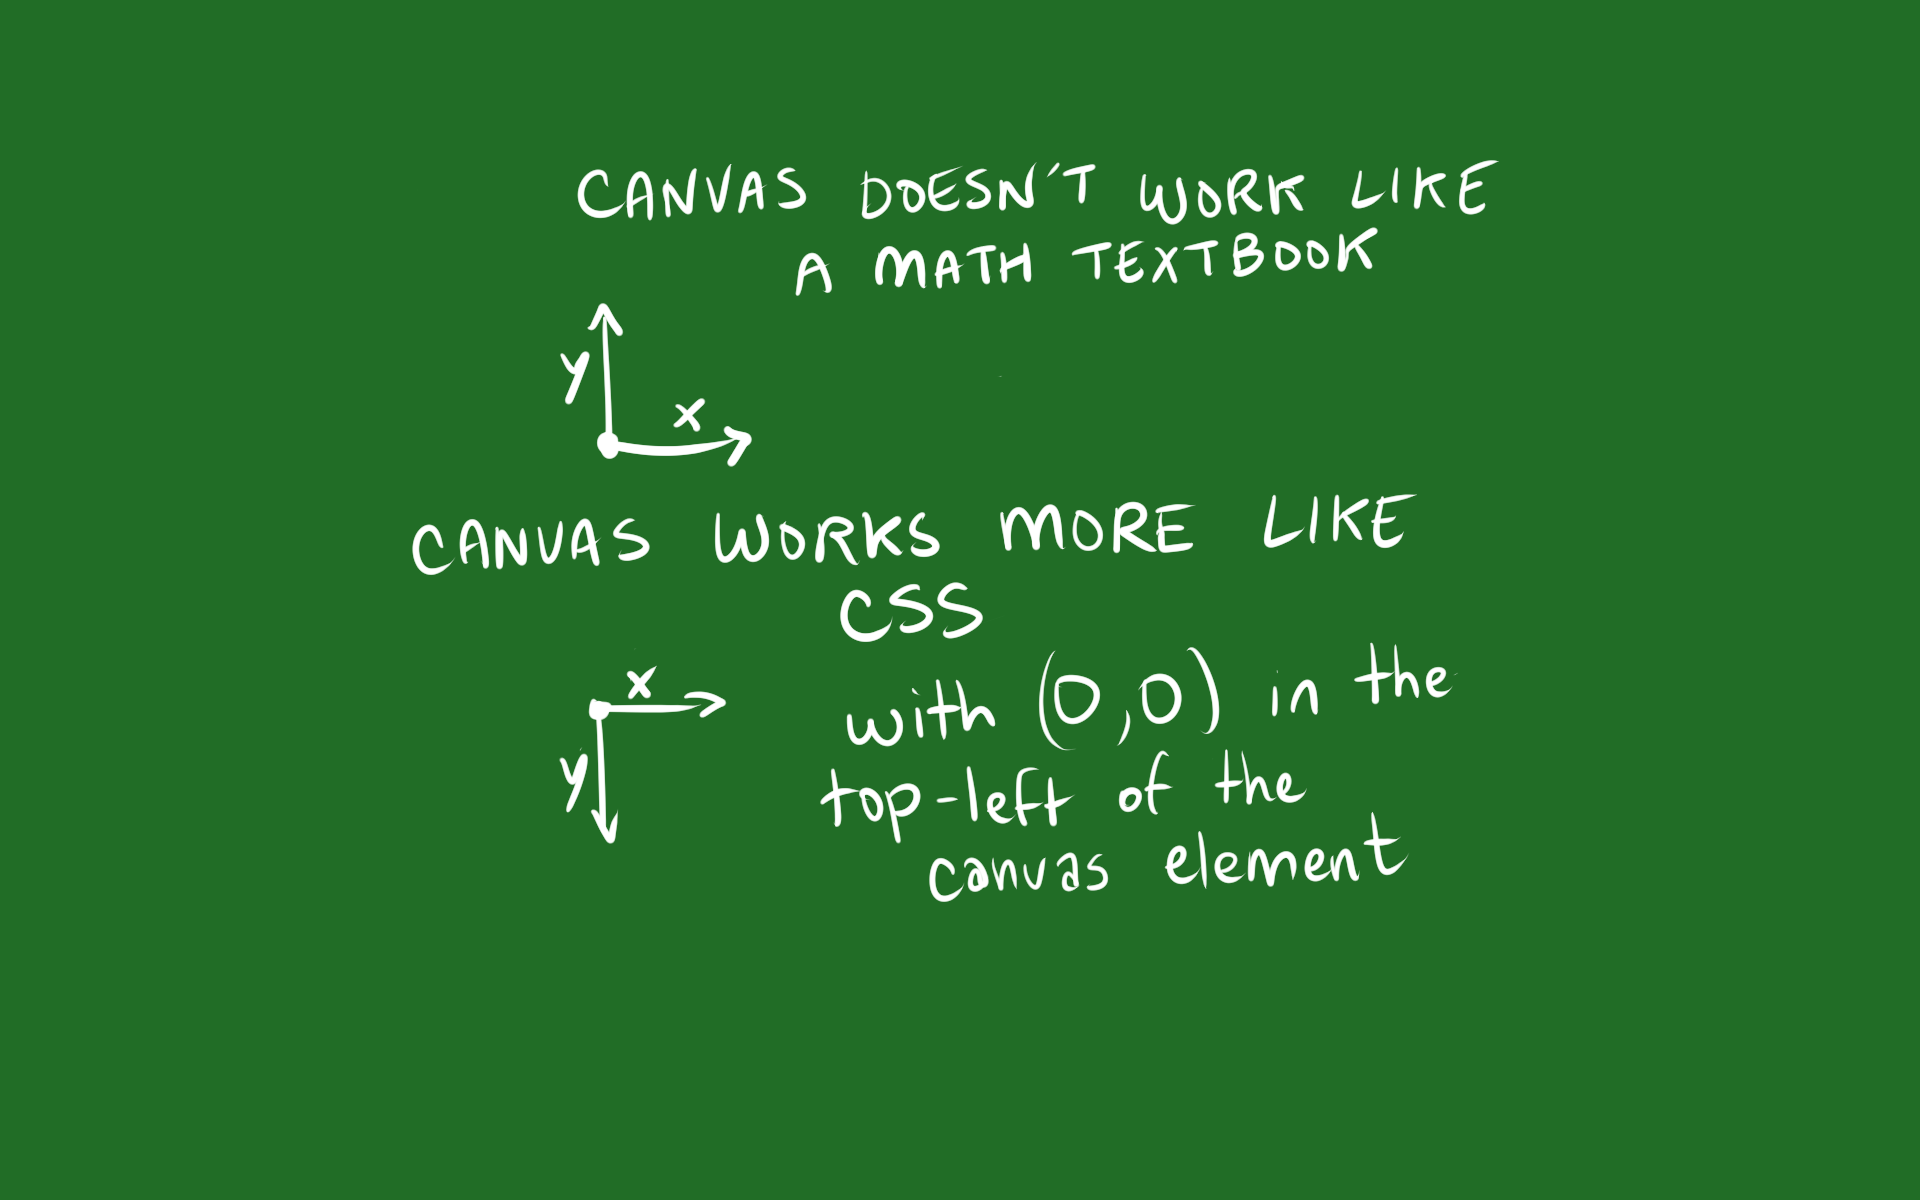 CANVAS DOESN'T WORK LIKE
A MATH TEXTBOOK
y
x
CANVAS WORKS MORE LIKE
CSS
x
y
with (0,0) in the
top-left of the
canvas element